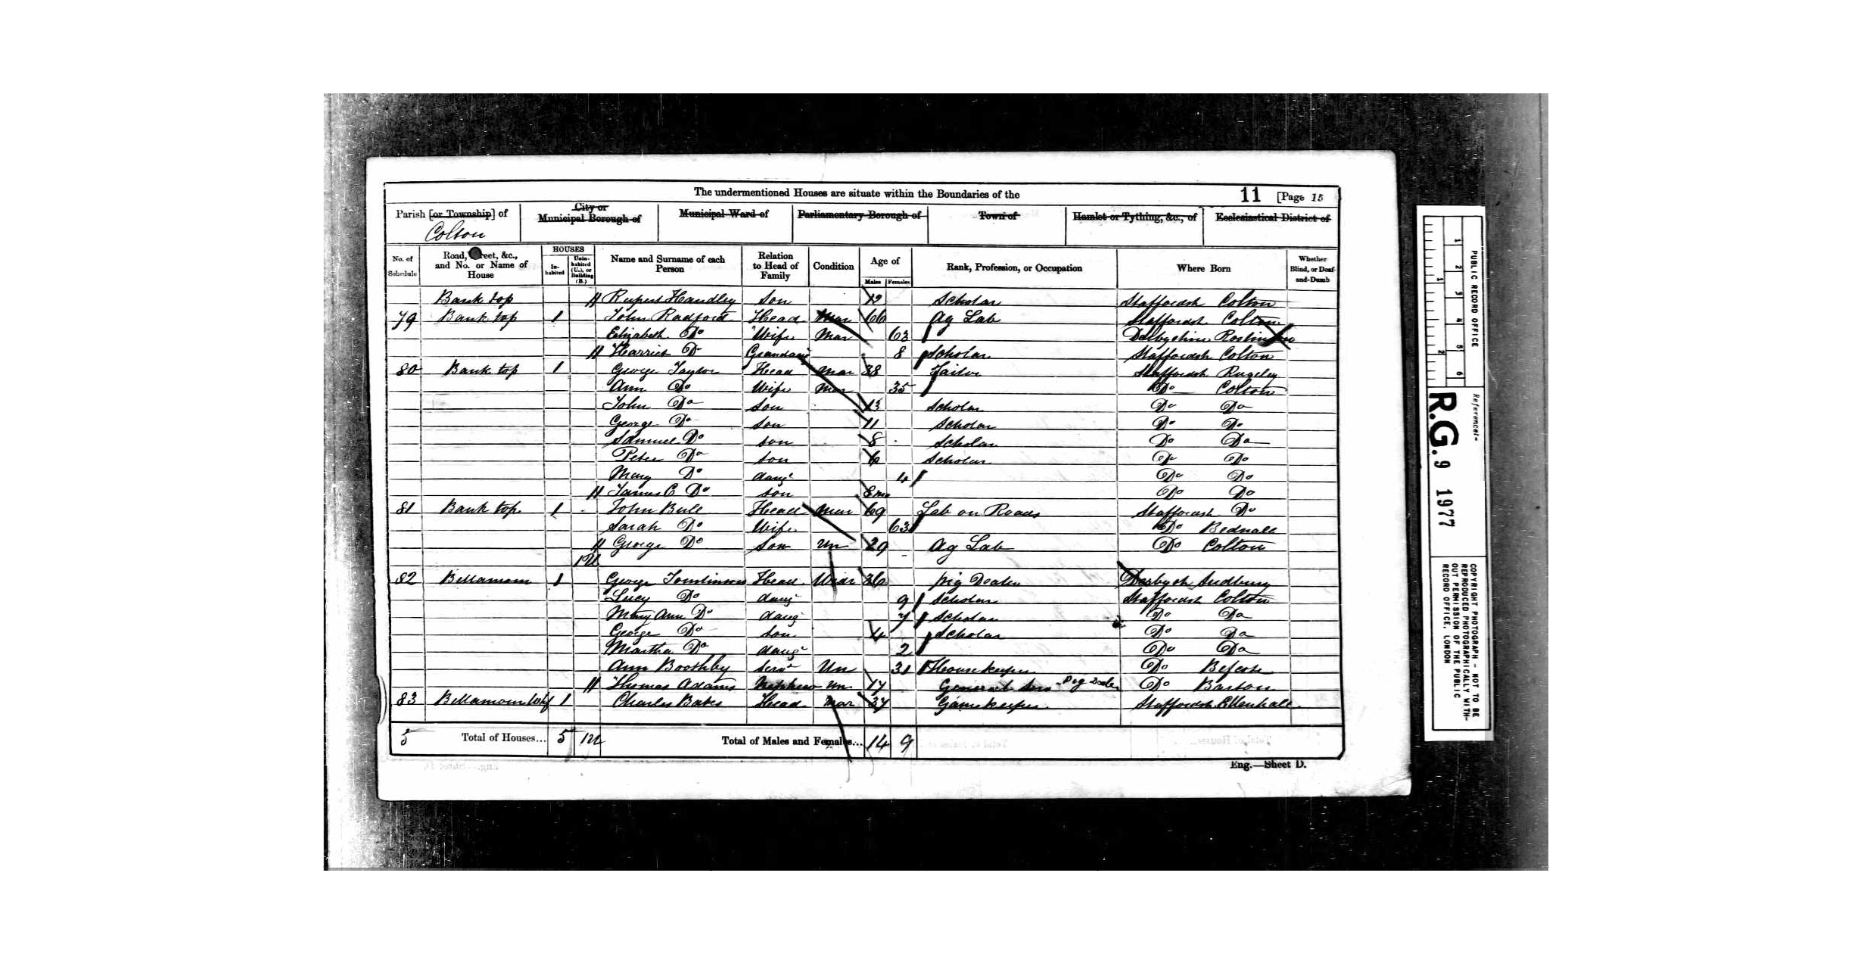 The undermentioned Houses are situate within the Boundaries of the 11 [Page 15
Parish [or Township] of City or Municipal Borough of Municipal Ward of Parliamentary Borough of Town of Hamlet or Tything, &c., of Ecclesiastical District of
Colton
No. of Schedule Road, Street, &c., and No. or Name of House HOUSES Inhabited Uninhabited (U.), or Building (B.) Name and Surname of each Person Relation to Head of Family Condition Age of Males Females Rank, Profession, or Occupation Where Born Whether Blind, or Deaf-and-Dumb
Bank top // Rupert Handley Son 12 Scholar Staffordsh Colton
79 Bank top 1 John Radford Head Mar 66 Ag Lab Staffordsh Colton
Elizabeth Do Wife Mar 63 Derbyshire
// Harriet Do 8 Scholar Staffordsh Colton
80 Bank top 1 George Taylor Head Mar 38 Tailor Staffordsh Rugeley
Ann Do Wife Mar 35 Do Colton
John Do Son 13 Scholar Do Do
George Do Son 11 Scholar Do Do
Samuel Do Son 8 Scholar Do Do
Peter Do Son 6 Scholar Do Do
Mary Do daur 4 Do Do
// James C. Do Son 8 mo Do Do
81 Bank top 1 John Bull Head Mar 69 Lab on Roads Staffordsh Do
Sarah Do Wife 63 Do Bednall
// George Do Son Un 29 Ag Lab Do Colton
1U
82 Bellamour 1 George Tomlinson Head Widr 36 Pig Dealer Derbysh Sudbury
Lucy Do daur 9 Scholar Staffordsh Colton
Mary Ann Do daur 7 Scholar Do Do
George Do Son 4 Scholar Do Do
Martha Do daur 2 Do Do
Ann Boothby Servt Un 31 Housekeeper Do
// Thomas Adams Nephew Un 17 General Serv - Pig Dealer Do Barton
83 Bellamour 1 Charles Bates Head Mar 37 Gamekeeper Staffordsh
5 Total of Houses... 5 1U Total of Males and Females... 14 9
Eng.—Sheet D.
PUBLIC RECORD OFFICE
Reference:-
R.G. 9 1977
COPYRIGHT PHOTOGRAPH - NOT TO BE REPRODUCED PHOTOGRAPHICALLY WITHOUT PERMISSION OF THE PUBLIC RECORD OFFICE, LONDON